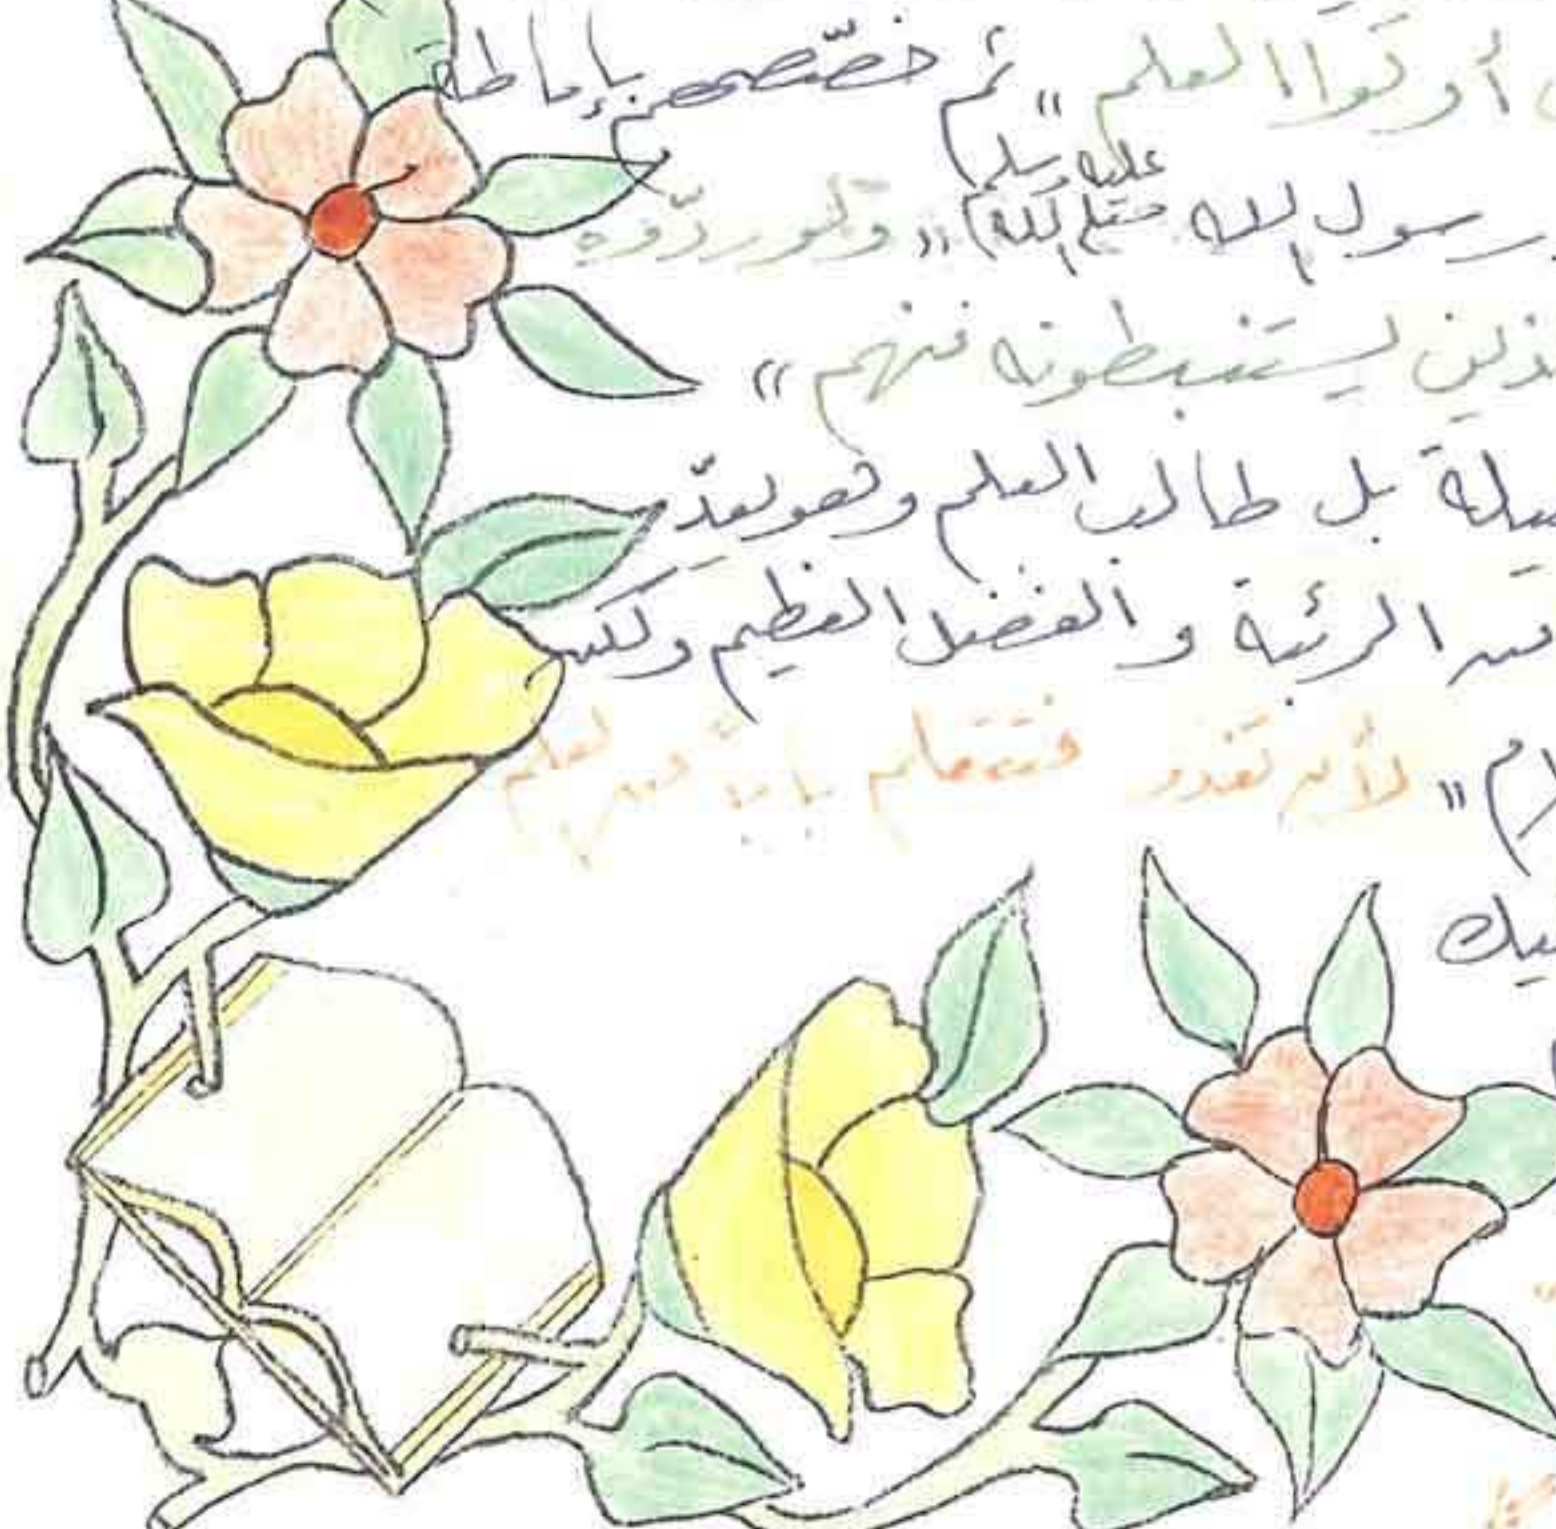 أوتوا العلم" ثم خصّصهن بإماطة
رسول الله صلى الله عليه وسلم "ولو ردّوه
يستنبطونه منهم"
بل طالب العلم وهو يعدّ
من الرتبة والفضل العظيم ولكن
"لأن تغدو فتتعلم بابا من العلم